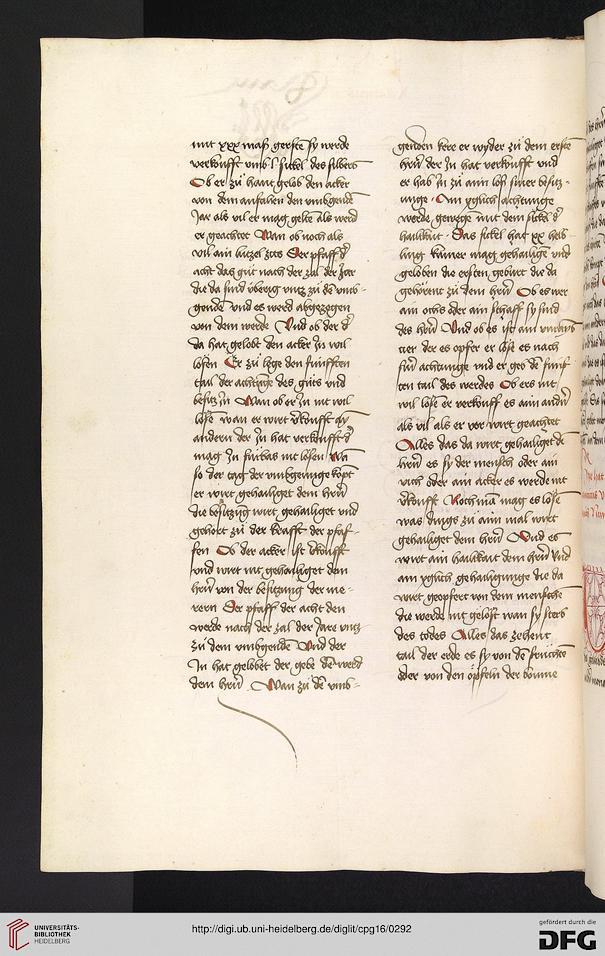 mit xxx maß gersten sy werde
verkoufft vmb l sickel des silbers
Ob er zů hant gelob den acker
von dem anfahen den vmbgende
Jar als vil er mag gelte als werd
er geachtet Wan ob noch als
vil ain lutzel zcts Der pfaff d'
acht das gůt nach der zal der Jar
die da sind úberig vntz zů de vmb-
gende vnd es werd abgezogen
von dem werde Vnd ob der d'
da hat gelobt den acker Jn wil
lösen Er zů lege den fúnfften
tail der achtunge des gůts vnd
besitz in Wan ob er in nit wil
löse wan er wirt v'koufft ay
andern der Jn hat verkoufft d'
mag Jn fúrbas nit lösen Wan
so der tag der vmbgeunge kōpt
er wirt gehailiget dem hrn
die besitzung wirt gehailiget vnd
gehort zů der krafft der pfaf-
fen Ob der acker ist v'koufft
vnd wirt nit gehailiget dem
hrn von der besitzung der me-
rern Der pfaff der acht den
werde nach der zal der Jare vntz
zů dem vmbgende Vnd der
Jn hat gelobet der gebe de werd
dem hrn Wan zů de vmb-
genden kere er wyder zů dem erste
hrn der Jn hat verkoufft vnd
er hab in zů aim loß siner besitz-
unge Ain yglich achtunge
werde gewege mit dem sickel d'
hailikait Das sickel hat xx helb
ling kainer mag gehailige vnd
geloben die ersten geburt die da
gehörent zů dem hrn Ob es wer
ain ochs oder ain schaff sy sind
des hrn Vnd ob es ist ain vnrain
tier der es opfer er löse es nach
siner achtunge vnd er geb de fúnf
ten tail des werdes Ob ers nit
wil löse er verkouff es aim andn
als vil als er vor wirt geachtet
Alles das da wirt gehailiget de
hrn es sy der mensch oder ain
vich oder ain acker es werde nit
v'koufft Noch mā mag es löse
was dings zů aim mal wirt
gehailiget dem hrn Vnd es
wirt ain hailikait dem hrn Vnd
ain yglich gehailigunge die da
wirt geopfert von dem mensche
die werde nit gelößt wan sy sterb
des todes Alles das zehent
tail der erde es sy von de frúchte
oder von den öpfeln der boume
UNIVERSITÄTS-
BIBLIOTHEK
HEIDELBERG
http://digi.ub.uni-heidelberg.de/diglit/cpg16/0292
gefördert durch die
DFG